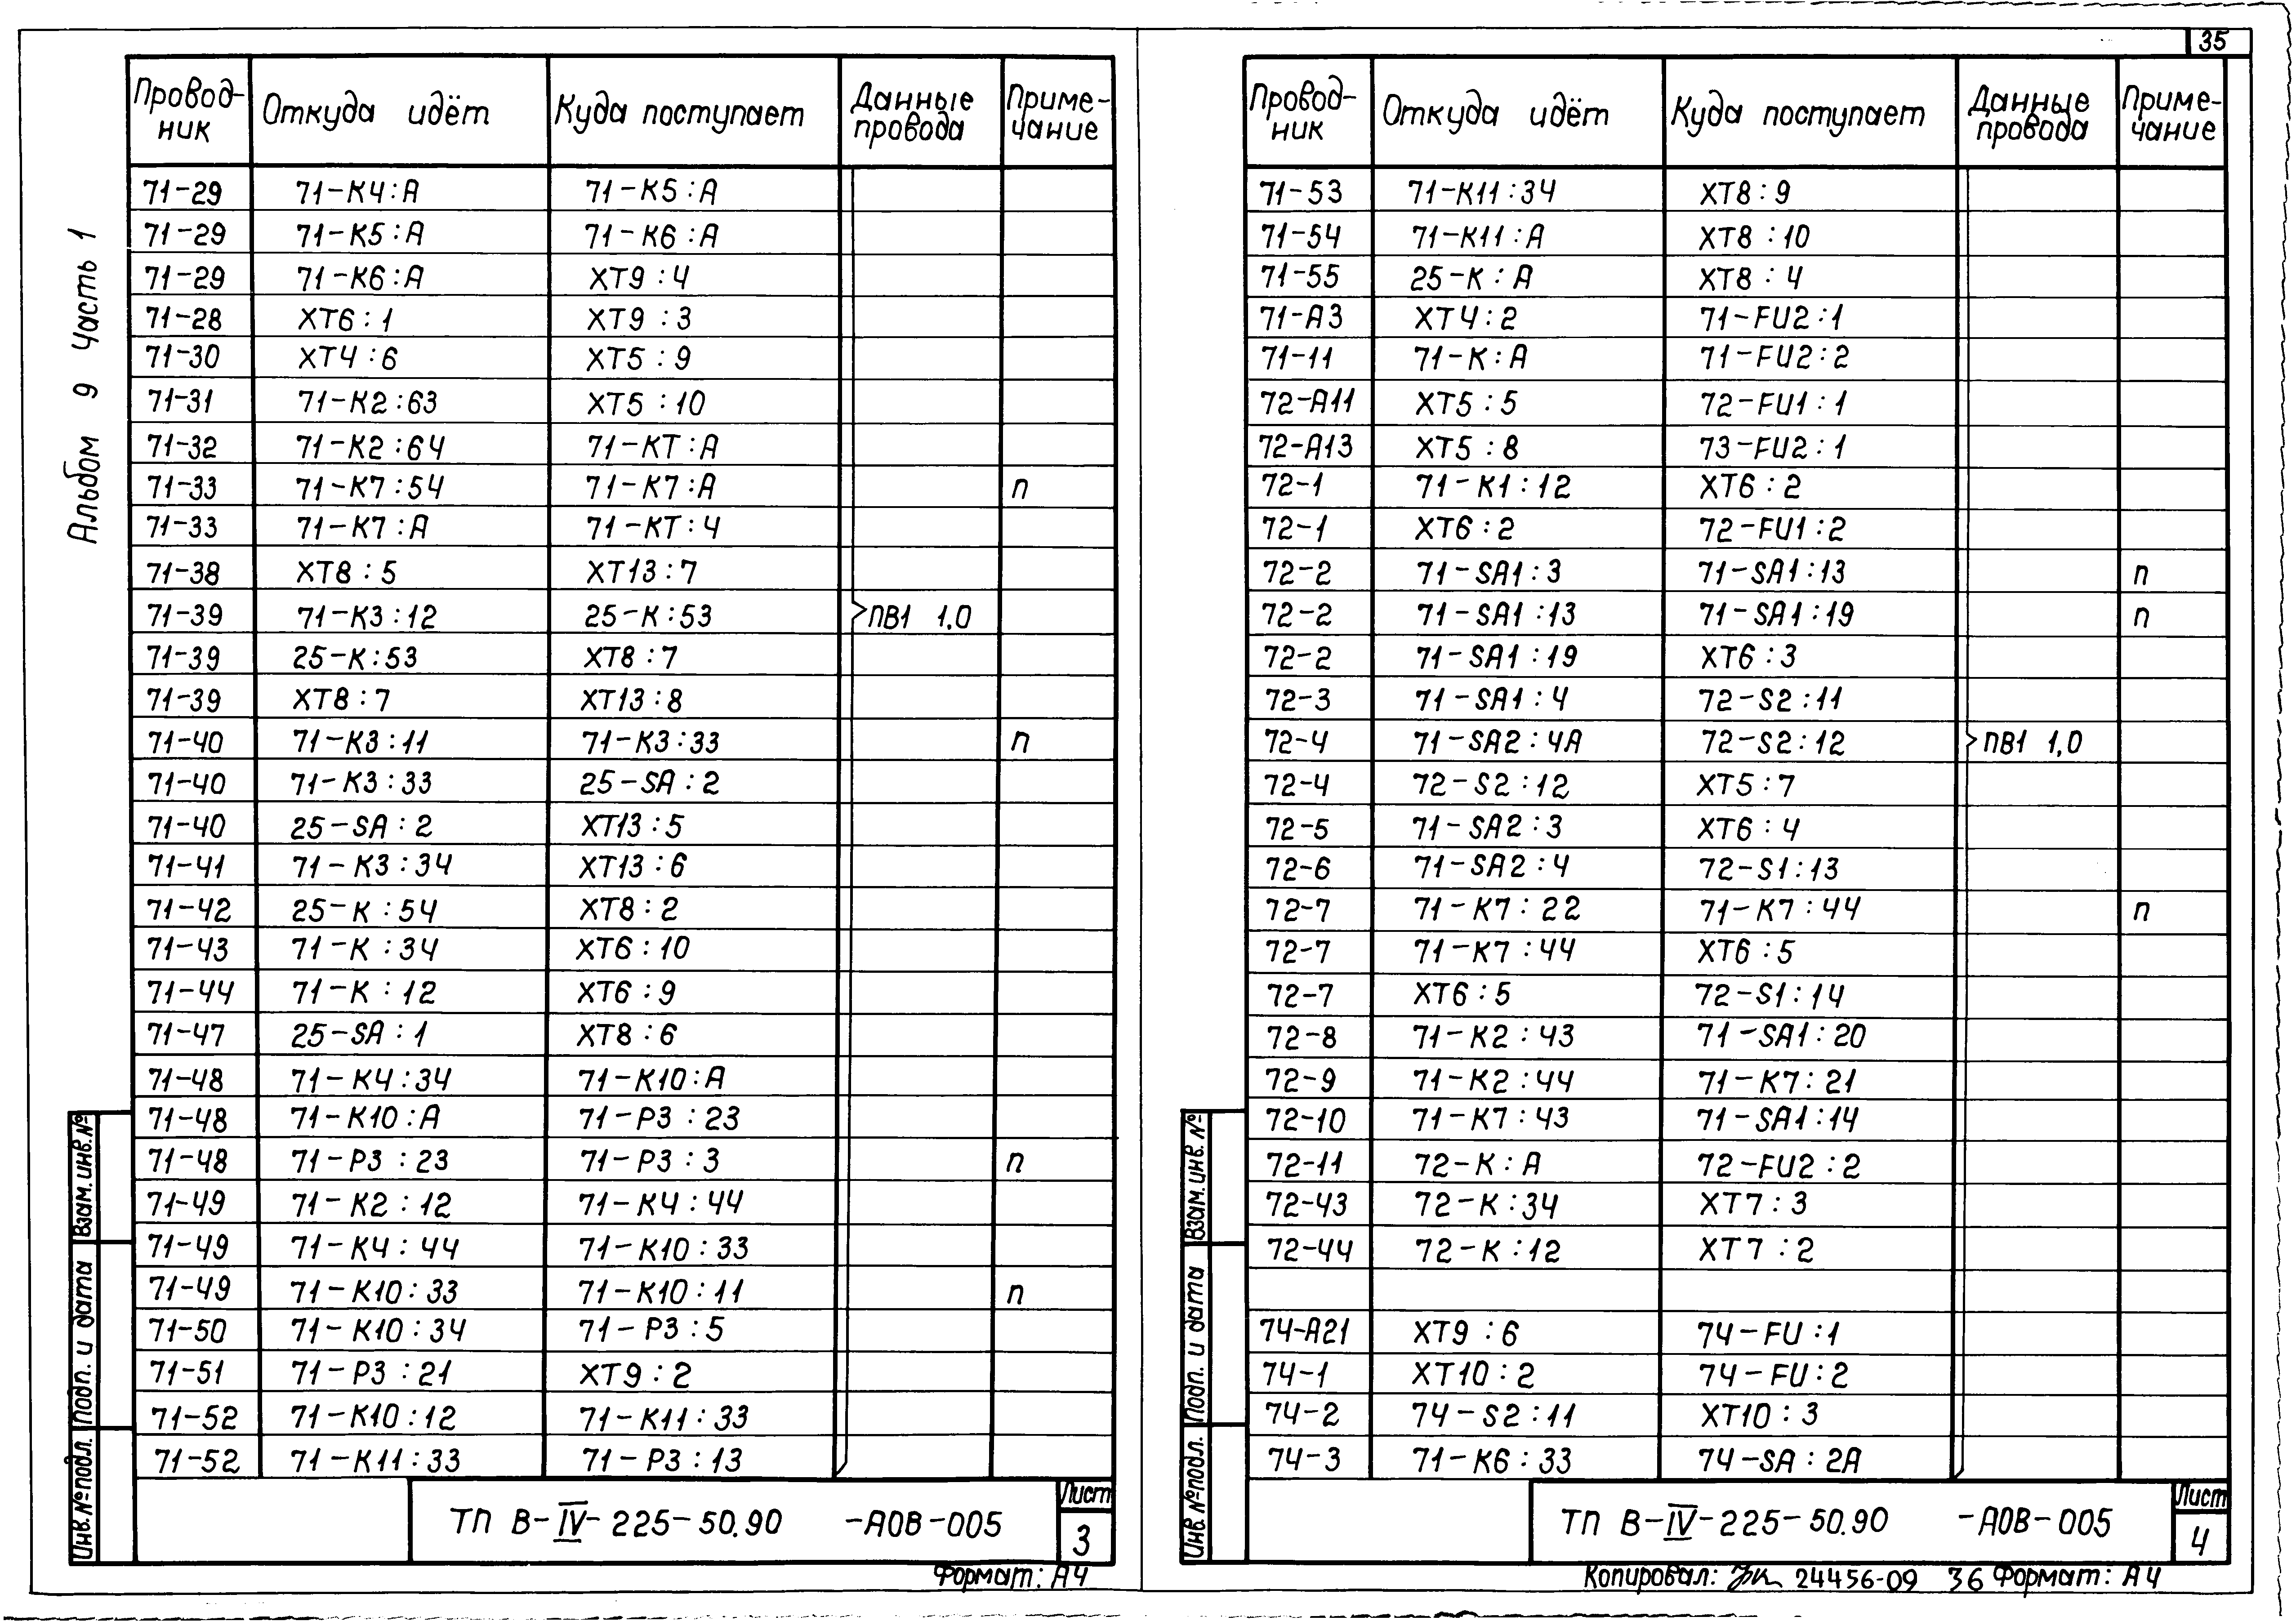 35
Альбом 9 Часть 1
Провод-ник Откуда идёт Куда поступает Данные провода Приме-чание
71-29 71-К4:А 71-К5:А
71-29 71-К5:А 71-К6:А
71-29 71-К6:А ХТ9:4
71-28 ХТ6:1 ХТ9:3
71-30 ХТ4:6 ХТ5:9
71-31 71-К2:63 ХТ5:10
71-32 71-К2:64 71-КТ:А
71-33 71-К7:54 71-К7:А п
71-33 71-К7:А 71-КТ:4
71-38 ХТ8:5 ХТ13:7
71-39 71-К3:12 25-К:53 ПВ1 1,0
71-39 25-К:53 ХТ8:7
71-39 ХТ8:7 ХТ13:8
71-40 71-К3:11 71-К3:33 п
71-40 71-К3:33 25-SA:2
71-40 25-SA:2 ХТ13:5
71-41 71-К3:34 ХТ13:6
71-42 25-К:54 ХТ8:2
71-43 71-К:34 ХТ6:10
71-44 71-К:12 ХТ6:9
71-47 25-SA:1 ХТ8:6
71-48 71-К4:34 71-К10:А
71-48 71-К10:А 71-Р3:23
71-48 71-Р3:23 71-Р3:3 п
71-49 71-К2:12 71-К4:44
71-49 71-К4:44 71-К10:33
71-49 71-К10:33 71-К10:11 п
71-50 71-К10:34 71-Р3:5
71-51 71-Р3:21 ХТ9:2
71-52 71-К10:12 71-К11:33
71-52 71-К11:33 71-Р3:13
Взам.инв.№
Подп. и дата
Инв.№подл.
ТП В-IV-225-50.90 -АОВ-005
Лист
3
Формат: А4
Провод-ник Откуда идёт Куда поступает Данные провода Приме-чание
71-53 71-К11:34 ХТ8:9
71-54 71-К11:А ХТ8:10
71-55 25-К:А ХТ8:4
71-А3 ХТ4:2 71-FU2:1
71-11 71-К:А 71-FU2:2
72-А11 ХТ5:5 72-FU1:1
72-А13 ХТ5:8 73-FU2:1
72-1 71-К1:12 ХТ6:2
72-1 ХТ6:2 72-FU1:2
72-2 71-SA1:3 71-SA1:13 п
72-2 71-SA1:13 71-SA1:19 п
72-2 71-SA1:19 ХТ6:3
72-3 71-SA1:4 72-S2:11
72-4 71-SA2:4А 72-S2:12 ПВ1 1,0
72-4 72-S2:12 ХТ5:7
72-5 71-SA2:3 ХТ6:4
72-6 71-SA2:4 72-S1:13
72-7 71-К7:22 71-К7:44 п
72-7 71-К7:44 ХТ6:5
72-7 ХТ6:5 72-S1:14
72-8 71-К2:43 71-SA1:20
72-9 71-К2:44 71-К7:21
72-10 71-К7:43 71-SA1:14
72-11 72-К:А 72-FU2:2
72-43 72-К:34 ХТ7:3
72-44 72-К:12 ХТ7:2
74-А21 ХТ9:6 74-FU:1
74-1 ХТ10:2 74-FU:2
74-2 74-S2:11 ХТ10:3
74-3 71-К6:33 74-SA:2А
Взам.инв.№
Подп. и дата
Инв.№подл.
ТП В-IV-225-50.90 -АОВ-005
Лист
4
Копировал: 24456-09 36 Формат: А4